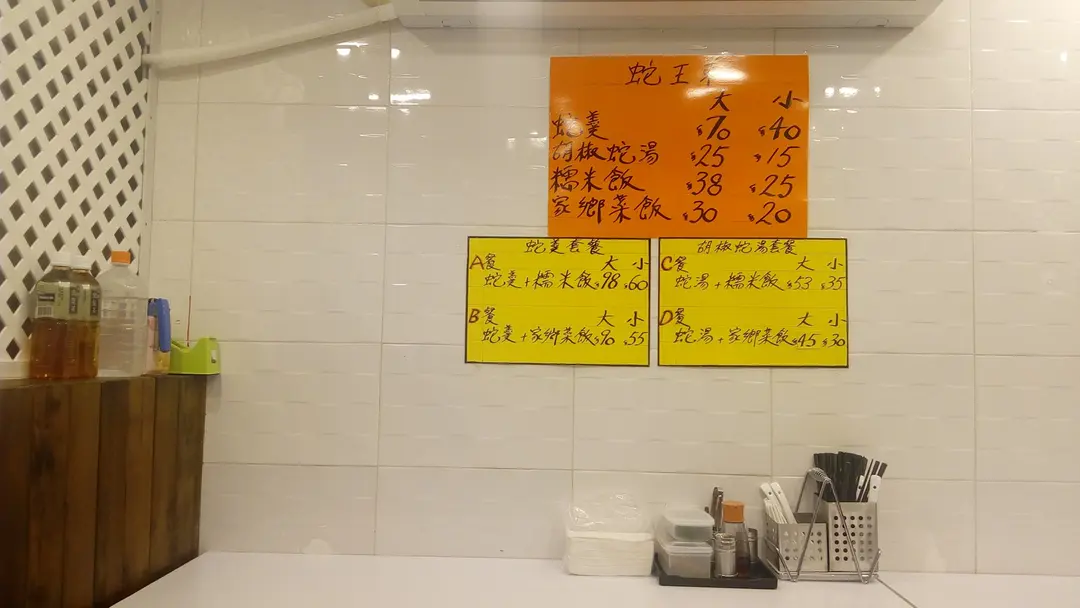 蛇王
大 小
蛇羹 $70 $40
胡椒蛇湯 $25 $15
糯米飯 $38 $25
家鄉菜飯 $30 $20
蛇羹套餐
A餐 大 小
蛇羹+糯米飯 $98 $60
B餐 大 小
蛇羹+家鄉菜飯 $90 $55
胡椒蛇湯套餐
C餐 大 小
蛇湯+糯米飯 $53 $35
D餐 大 小
蛇湯+家鄉菜飯 $45 $30